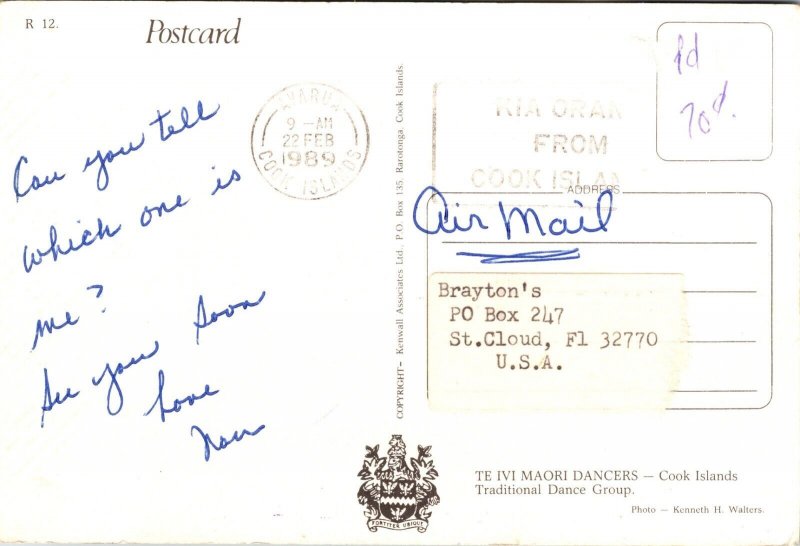 R 12.
Postcard
Can you tell
which one is
me?
See you soon
Love
AVARUA
9 -AM
22 FEB
1989
COOK ISLANDS
COPYRIGHT- Kenwall Associates Ltd., P.O. Box 135, Rarotonga. Cook Islands.
KIA ORAN
FROM
COOK ISLA
Pd
70d.
ADDRESS
Air Mail
Brayton's
PO Box 247
St.Cloud, Fl 32770
U.S.A.
FORTITER UBIQUE
TE IVI MAORI DANCERS — Cook Islands
Traditional Dance Group.
Photo — Kenneth H. Walters.